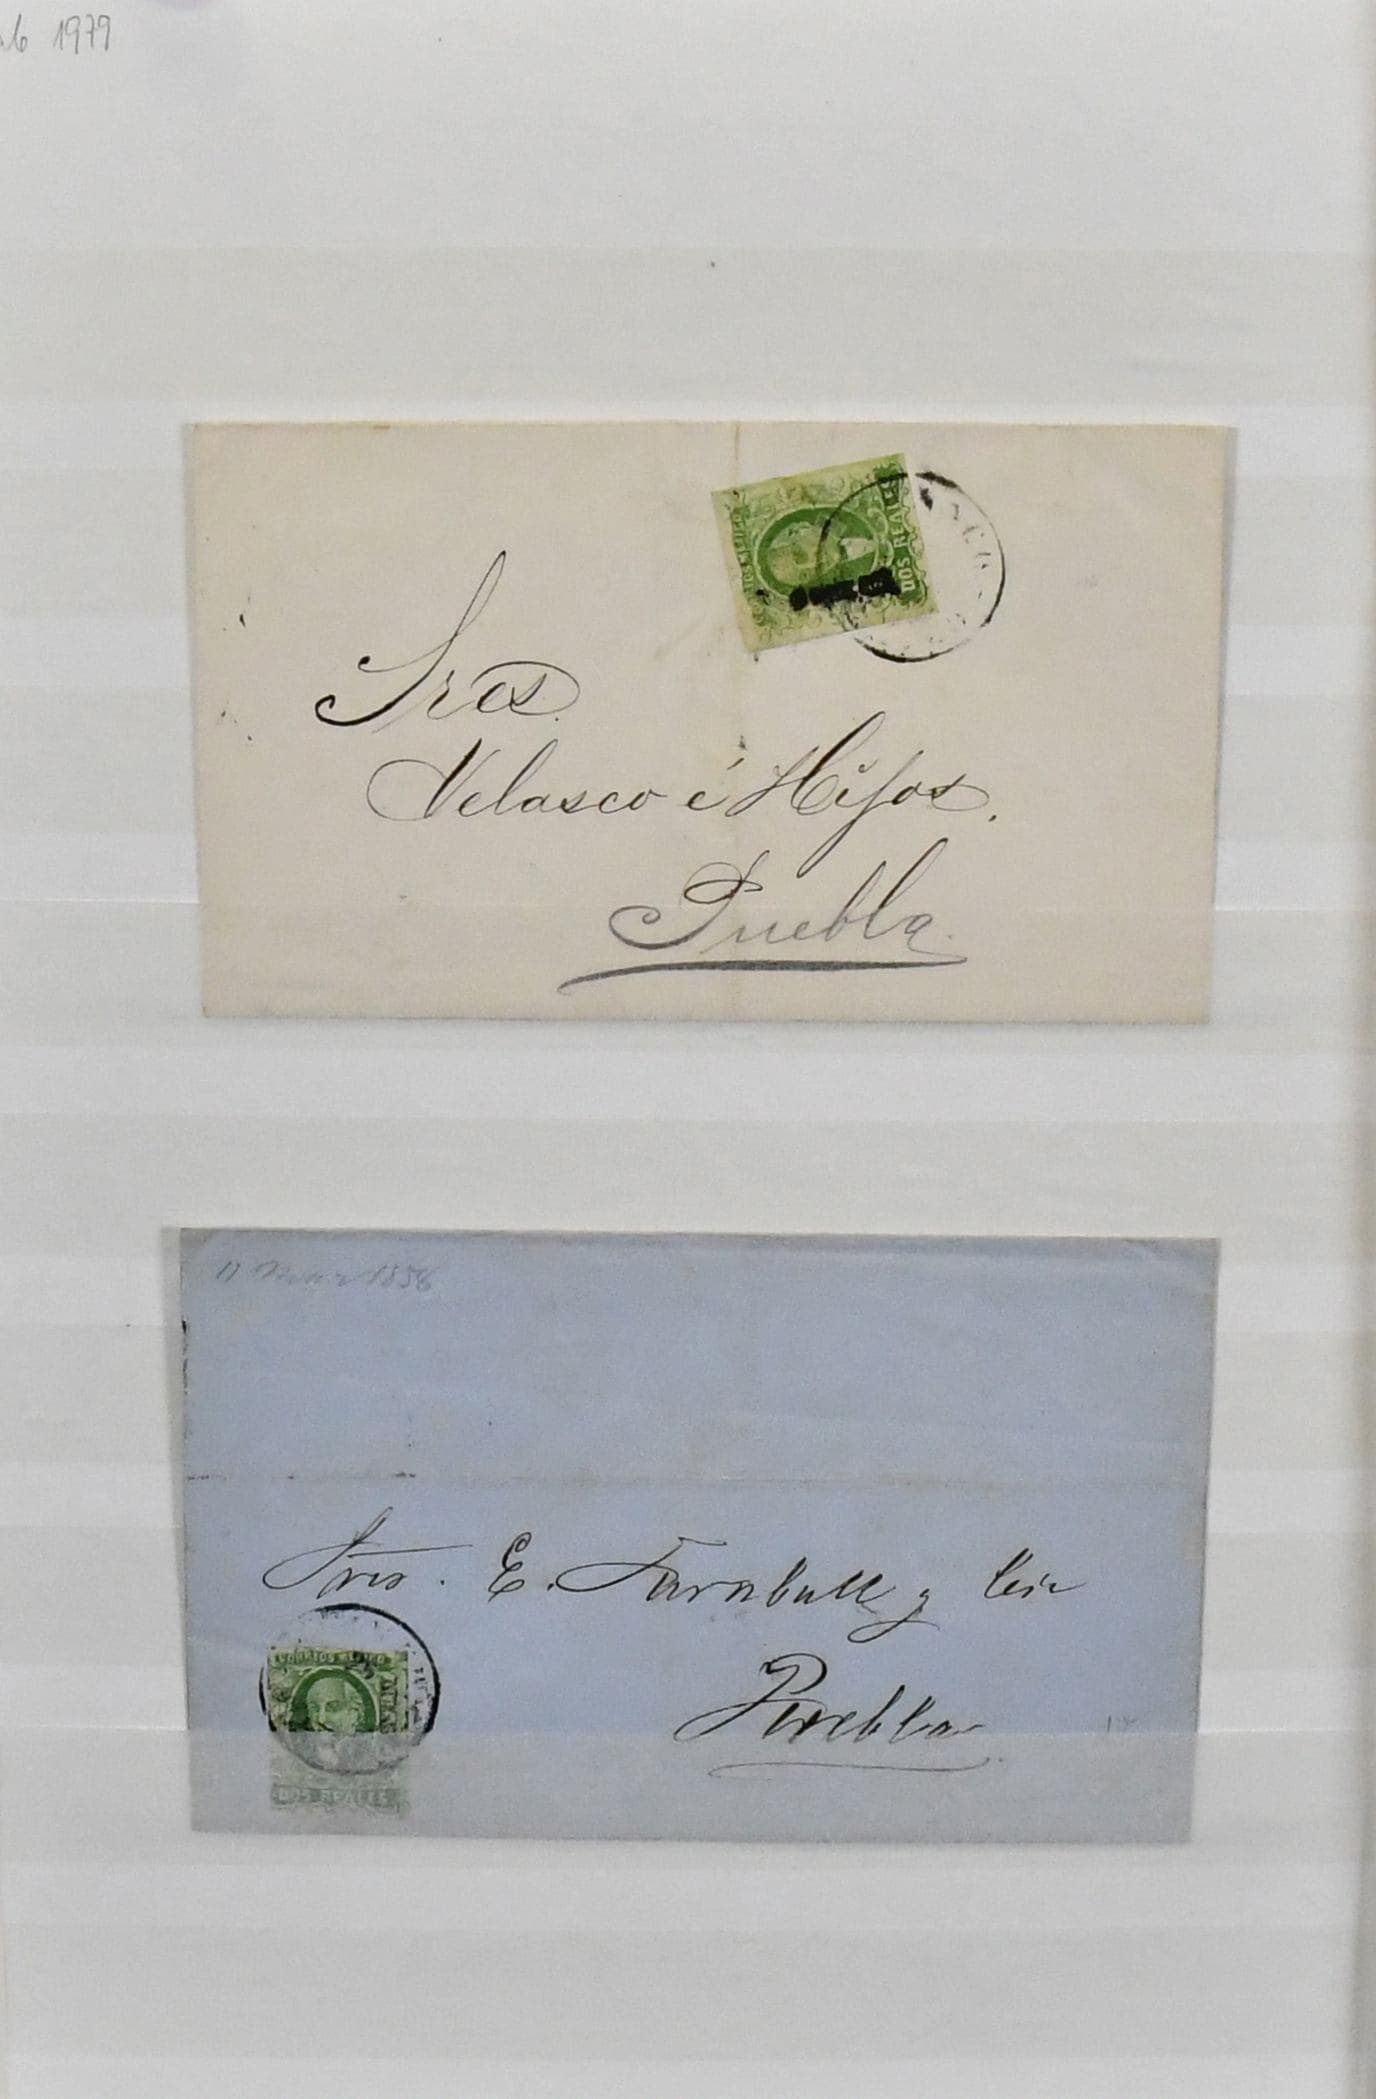 1979
CORREOS MEJICO
DOS REALES
Sres.
Velasco é Hijos.
Puebla.
1856
Sres. E. Turnbull y Cia
CORREOS MEJICO
Puebla
DOS REALES